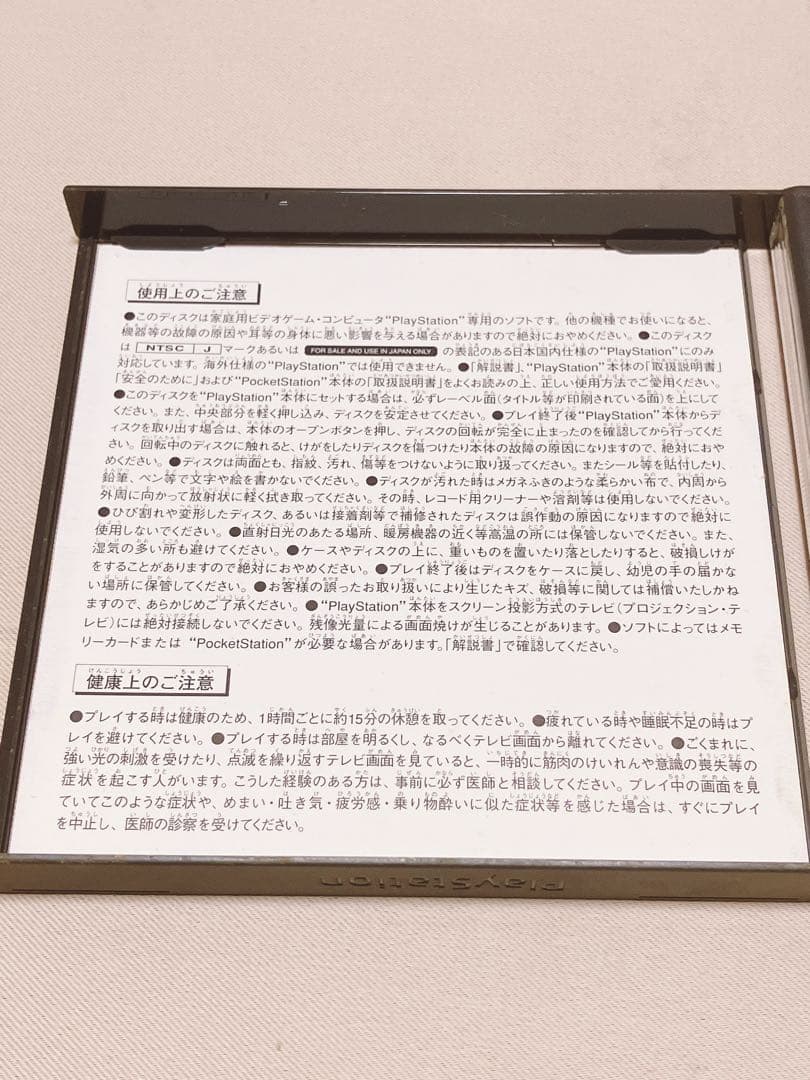 使用上のご注意
●このディスクは家庭用ビデオゲーム・コンピュータ“PlayStation”専用のソフトです。他の機種でお使いになると、
機器等の故障の原因や耳等の身体に悪い影響を与える場合がありますので絶対におやめください。●このディスク
は NTSC J マークあるいは FOR SALE AND USE IN JAPAN ONLY の表記のある日本国内仕様の“PlayStation”にのみ
対応しています。海外仕様の“PlayStation”では使用できません。●「解説書」、“PlayStation”本体の「取扱説明書」
「安全のために」および“PocketStation”本体の「取扱説明書」をよくお読みの上、正しい使用方法でご愛用ください。
●このディスクを“PlayStation”本体にセットする場合は、必ずレーベル面(タイトル等が印刷されている面)を上にして
ください。また、中央部分を軽く押し込み、ディスクを安定させてください。●プレイ終了後“PlayStation”本体からデ
ィスクを取り出す場合は、本体のオープンボタンを押し、ディスクの回転が完全に止まったのを確認してから行ってくだ
さい。回転中のディスクに触れると、けがをしたりディスクを傷つけたり本体の故障の原因になりますので、絶対におや
めください。●ディスクは両面とも、指紋、汚れ、傷等をつけないように取り扱ってください。またシール等を貼付したり、
鉛筆、ペン等で文字や絵を書かないでください。●ディスクが汚れた時はメガネふきのような柔らかい布で、内周から
外周に向かって放射状に軽く拭き取ってください。その時、レコード用クリーナーや溶剤等は使用しないでください。
●ひび割れや変形したディスク、あるいは接着剤等で補修されたディスクは誤作動の原因になりますので絶対に
使用しないでください。●直射日光のあたる場所、暖房機器の近く等高温の所には保管しないでください。また、
湿気の多い所も避けてください。●ケースやディスクの上に、重いものを置いたり落としたりすると、破損しけが
をすることがありますので絶対におやめください。●プレイ終了後はディスクをケースに戻し、幼児の手の届かな
い場所に保管してください。●お客様の誤ったお取り扱いにより生じたキズ、破損等に関しては補償いたしかね
ますので、あらかじめご了承ください。●“PlayStation”本体をスクリーン投影方式のテレビ(プロジェクション・テ
レビ)には絶対接続しないでください。残像光量による画面焼けが生じることがあります。●ソフトによってはメモ
リーカードまたは “PocketStation”が必要な場合があります。「解説書」で確認してください。
健康上のご注意
●プレイする時は健康のため、1時間ごとに約15分の休憩を取ってください。●疲れている時や睡眠不足の時はプ
レイを避けてください。●プレイする時は部屋を明るくし、なるべくテレビ画面から離れてください。●ごくまれに、
強い光の刺激を受けたり、点滅を繰り返すテレビ画面を見ていると、一時的に筋肉のけいれんや意識の喪失等の
症状を起こす人がいます。こうした経験のある方は、事前に必ず医師と相談してください。プレイ中の画面を見
ていてこのような症状や、めまい・吐き気・疲労感・乗り物酔いに似た症状等を感じた場合は、すぐにプレイ
を中止し、医師の診察を受けてください。
PlayStation